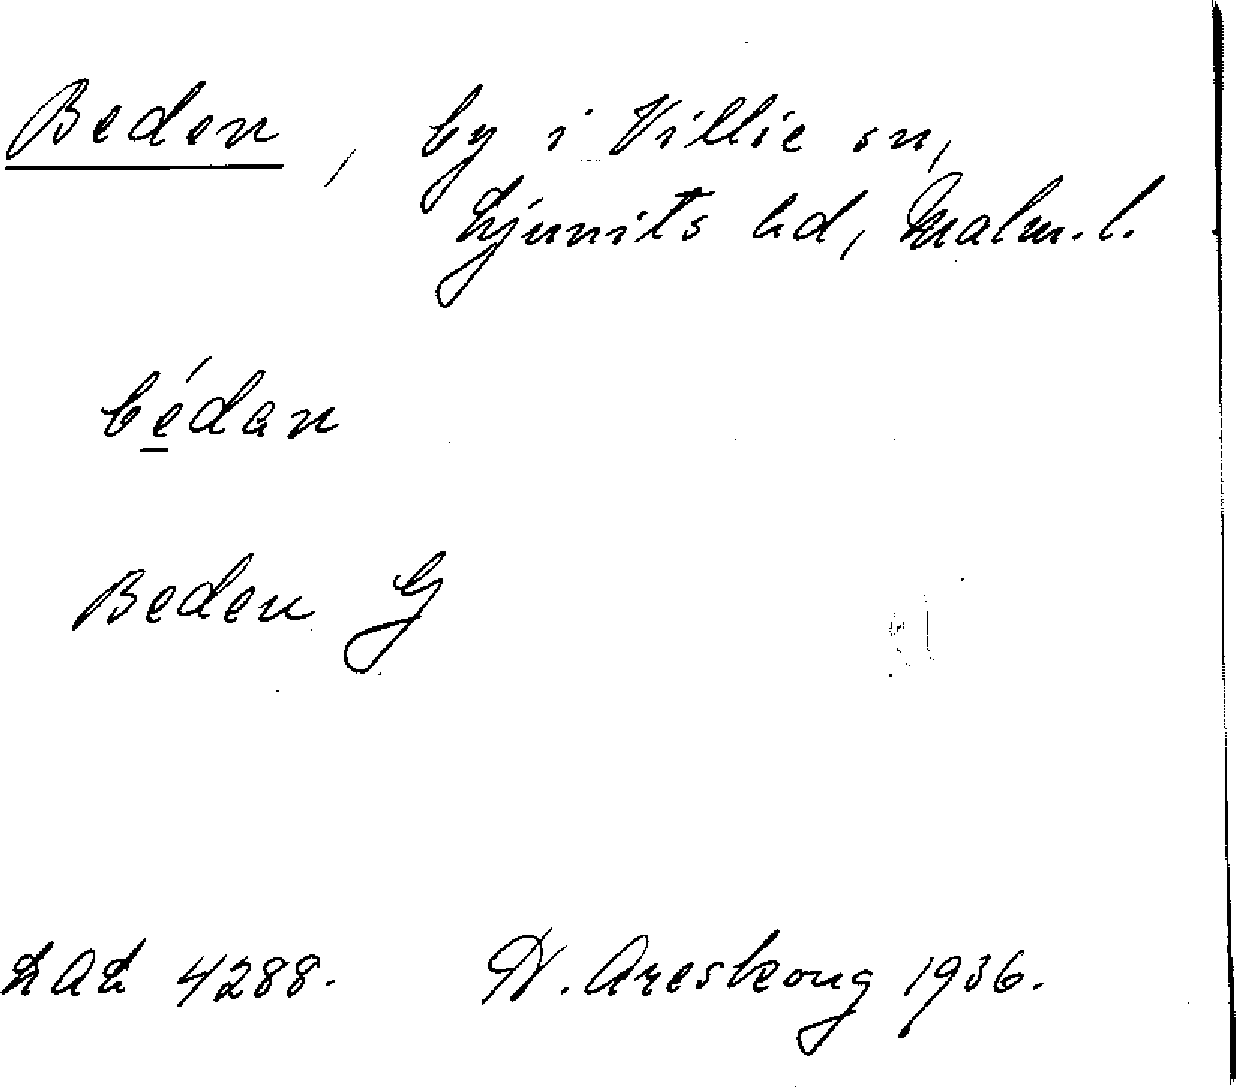 Beden, by i Villie sn,
Ljunits hd, Malm. l.
bédan
Beden G
LAL 4288. W. Areskoug 1936.